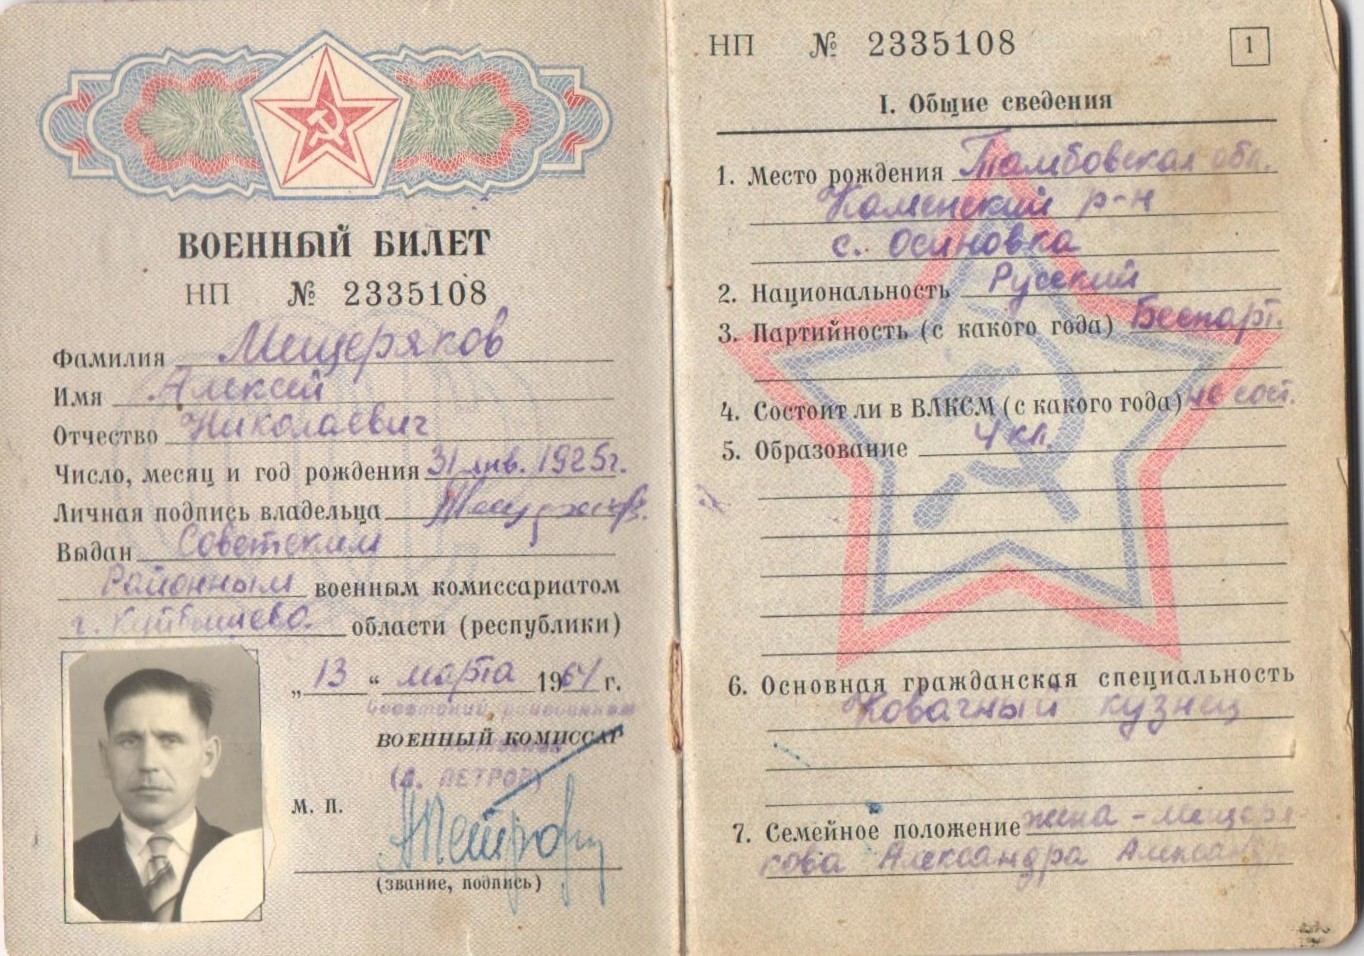 ВОЕННЫЙ БИЛЕТ
НП № 2335108
Фамилия Мещеряков
Имя Алексей
Отчество Николаевич
Число, месяц и год рождения 31 янв. 1925г.
Личная подпись владельца
Выдан Советским
Районным военным комиссариатом
г. Куйбышева области (республики)
„13“ марта 1964 г.
ВОЕННЫЙ КОМИССАР
(А. ПЕТРОВ)
М. П.
(звание, подпись)
НП № 2335108
1
I. Общие сведения
1. Место рождения Тамбовская обл.
Каменский р-н
с. Осиновка
2. Национальность Русский
3. Партийность (с какого года) Беспарт.
4. Состоит ли в ВЛКСМ (с какого года) не сост.
5. Образование 4 кл.
6. Основная гражданская специальность
Ковачный кузнец
7. Семейное положение жена - Мещеря
кова Александра